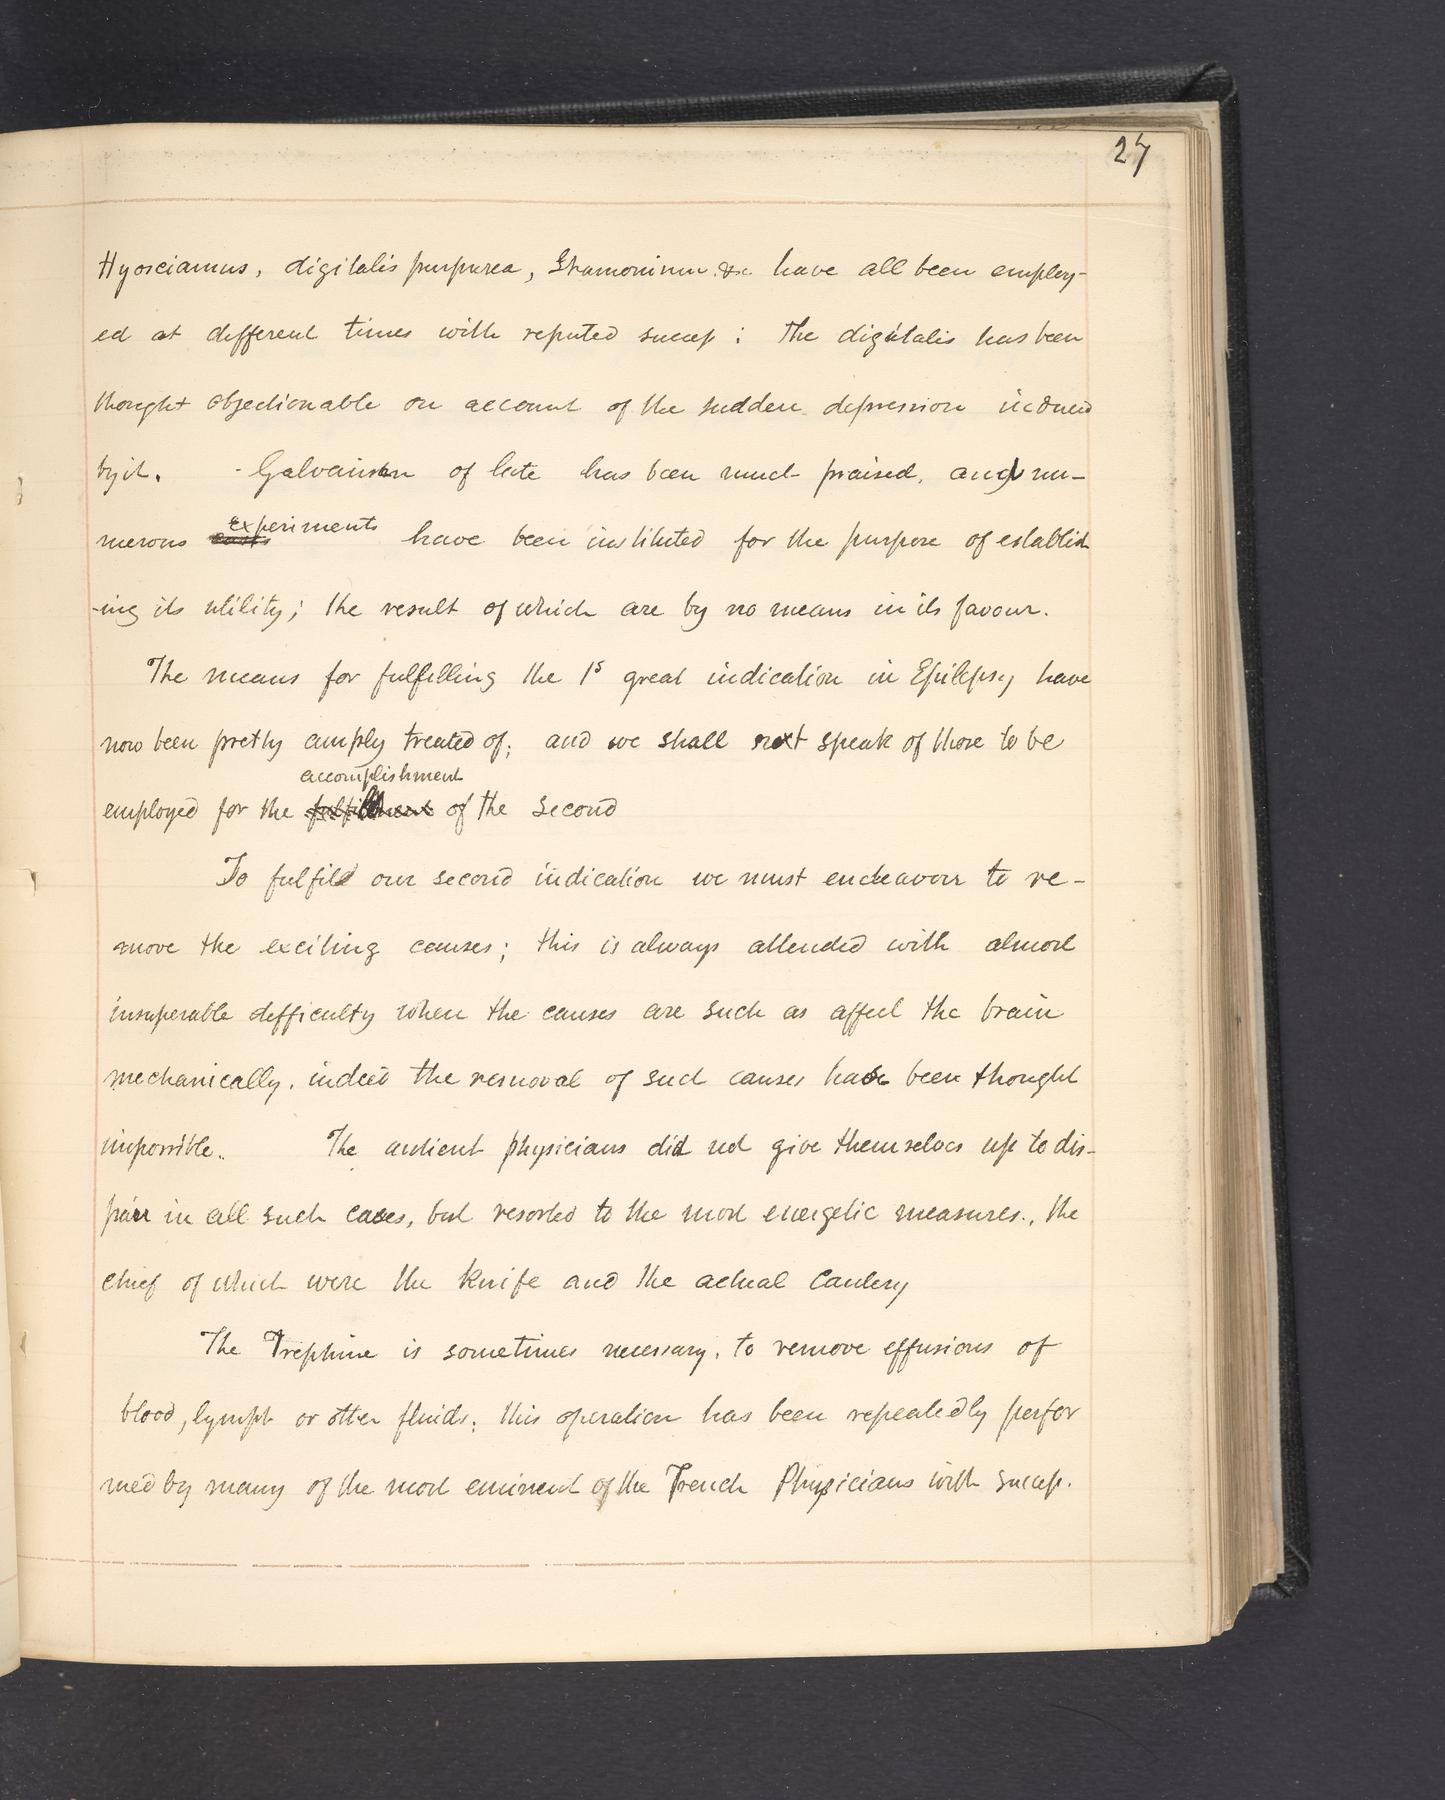 27
Hyosciamus, digitalis purpurea, Stramonium &c. have all been employ-
ed at different times with reputed success : The digitalis has been
thought objectionable on account of the sudden depression induced
by it. - Galvanism of late has been much praised, and nu-
merous experiments have been instituted for the purpose of establish
-ing its utility; the result of which are by no means in its favour.
The means for fulfilling the 1s great indication in Epilepsy have
now been pretty amply treated of; and we shall next speak of those to be
accomplishment
employed for the fulfillment of the second
To fulfil our second indication we must endeavour to re-
move the exciting causes; this is always attended with almost
insuperable difficulty when the causes are such as affect the brain
mechanically, indeed the removal of such causes have been thought
impossible. The antient physicians did not give themselves up to dis-
pair in all such cases, but resorted to the most energetic measures., the
chief of which were the Knife and the actual Cautery
The Trephine is sometimes necessary, to remove effusions of
blood, lymph or other fluids; this operation has been repeatedly perfor
med by many of the most eminent of the French Physicians with success.